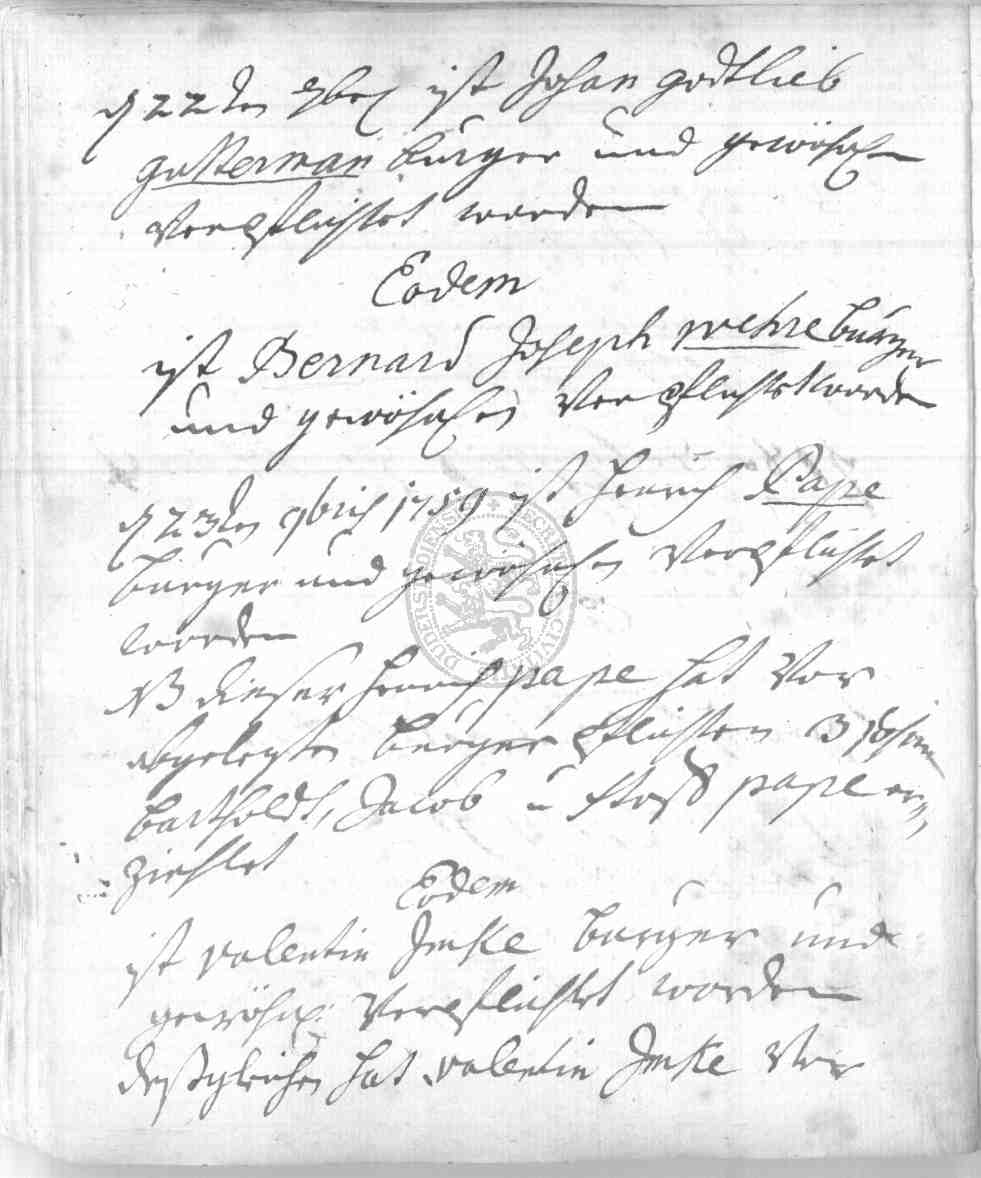 d 22ten 9brl ist Johan godtlieb
gusterman burger und gewöhnl
Verpflichtet worden
Eodem
ist Bernard Joseph wehre burger
und gewöhnlich Verpflichtet worden
d 23ten 9brich 1759 ist henrich Pape
burger und gewöhnlich Verpflichtet
worden
NB dieser henrich pape hat Vor
abgelegten burger pflichten 3
bartholdt, Jacob u pape er
ziehlet
Eodem
ist valentin Jmke burger und
gewöhnl Verpflichtet worden
deßgleichen hat valentin Jmke Vor